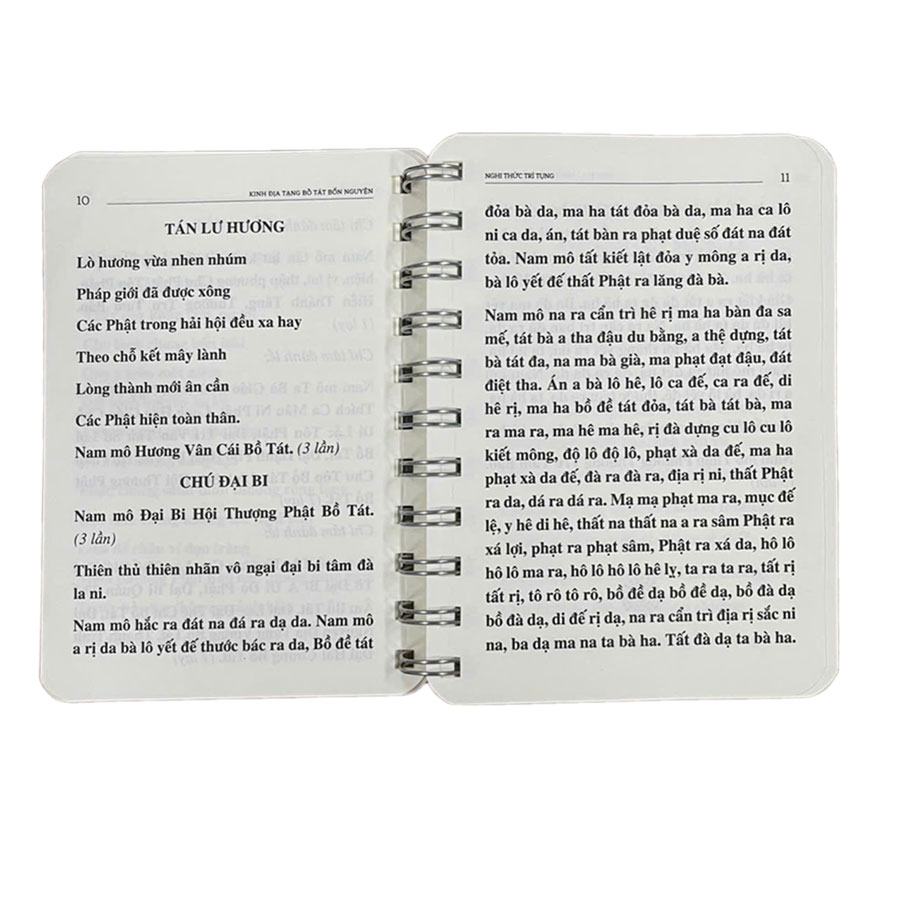 10
KINH ĐỊA TẠNG BỒ TÁT BỔN NGUYỆN
TÁN LƯ HƯƠNG
Lò hương vừa nhen nhúm
Pháp giới đã được xông
Các Phật trong hải hội đều xa hay
Theo chỗ kết mây lành
Lòng thành mới ân cần
Các Phật hiện toàn thân.
Nam mô Hương Vân Cái Bồ Tát. (3 lần)
CHÚ ĐẠI BI
Nam mô Đại Bi Hội Thượng Phật Bồ Tát.
(3 lần)
Thiên thủ thiên nhãn vô ngại đại bi tâm đà
la ni.
Nam mô hắc ra đát na đá ra dạ da. Nam mô
a rị da bà lô yết đế thước bác ra da, Bồ đề tát
NGHI THỨC TRÌ TỤNG
11
đỏa bà da, ma ha tát đỏa bà da, ma ha ca lô
ni ca da, án, tát bàn ra phạt duệ số đát na đát
tỏa. Nam mô tất kiết lật đỏa y mông a rị da,
bà lô yết đế thất Phật ra lăng đà bà.
Nam mô na ra cẩn trì hê rị ma ha bàn đa sa
mế, tát bà a tha đậu du bằng, a thệ dựng, tát
bà tát đa, na ma bà già, ma phạt đạt đậu, đát
điệt tha. Án a bà lô hê, lô ca đế, ca ra đế, di
hê rị, ma ha bồ đề tát đỏa, tát bà tát bà, ma
ra ma ra, ma hê ma hê, rị đà dựng cu lô cu lô
kiết mông, độ lô độ lô, phạt xà da đế, ma ha
phạt xà da đế, đà ra đà ra, địa rị ni, thất Phật
ra da, dá ra dá ra. Mạ mạ phạt ma ra, mục đế
lệ, y hê di hê, thất na thất na a ra sâm Phật ra
xá lợi, phạt ra phạt sâm, Phật ra xá da, hô lô
hô lô ma ra, hô lô hô lô hê lỵ, ta ra ta ra, tất rị
tất rị, tô rô tô rô, bồ đề dạ bồ đề dạ, bồ đà dạ
bồ đà dạ, di đế rị dạ, na ra cẩn trì địa rị sắc ni
na, ba dạ ma na ta bà ha. Tất đà dạ ta bà ha.